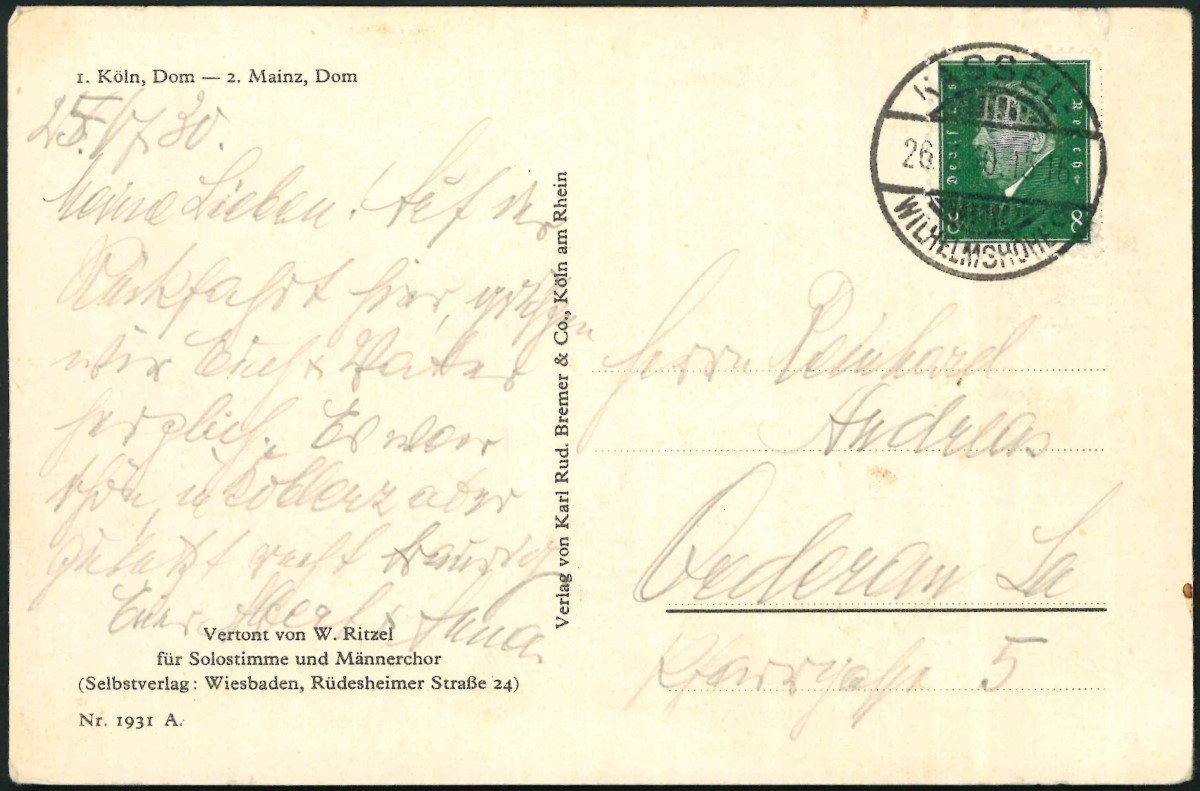 1. Köln, Dom — 2. Mainz, Dom
25. 30.
Meine Lieben! Auf der
Rückfahrt hier, grüßen
wir Euch u. Vater
herzlich. Es war
schön, in Koblenz aber
zuletzt recht traurig
Eure Albert u. Anna
Vertont von W. Ritzel
für Solostimme und Männerchor
(Selbstverlag: Wiesbaden, Rüdesheimer Straße 24)
Nr. 1931 A.
Verlag von Karl Rud. Bremer & Co., Köln am Rhein
KASSEL
26. 15-16
WILHELMSHÖHE
Deutsches Reich
8
Herrn Reinhard
Andreas
Oederan Sa
Pfarrgasse 5